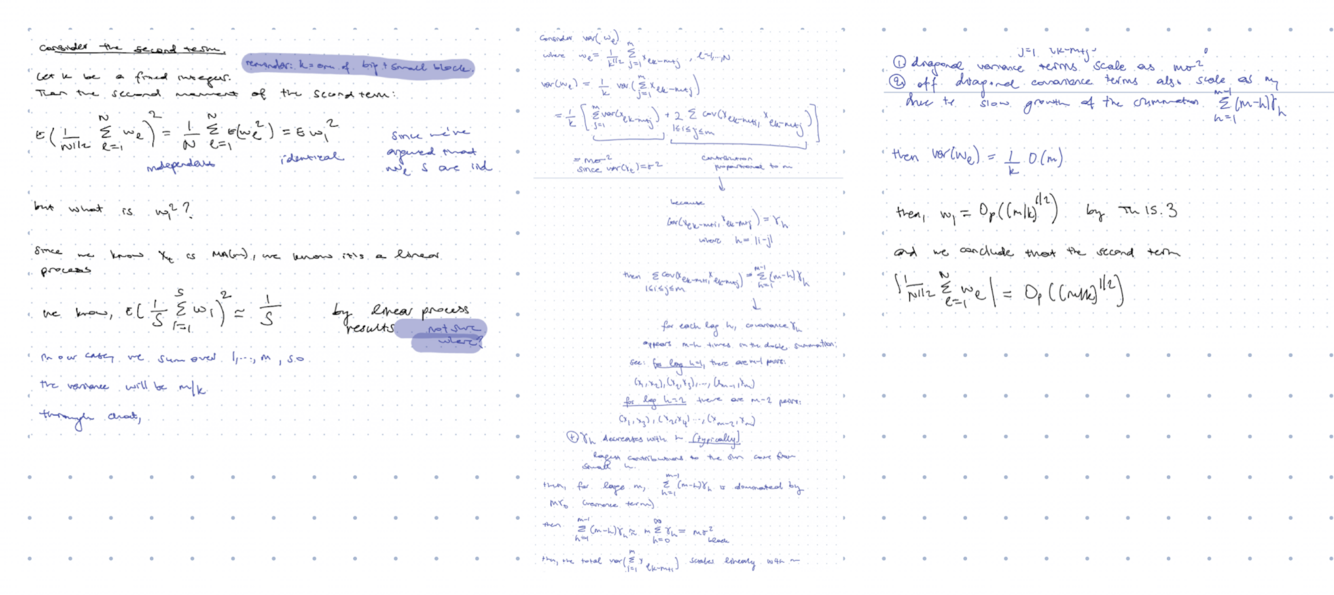 consider the second term
reminder: k = sum of big + small block.
Let k be a fixed integer.
Then the second moment of the second term:
E(1/N^{1/2} Σ_{ℓ=1}^{N} w_ℓ)^2 = 1/N Σ_{ℓ=1}^{N} E(w_ℓ^2) = E w_1^2
independent identical
since we've
argued that
w_ℓ's are iid
but what is w_1^2?
Since we know X_t is MA(m), we know it is a linear
process
we know, E(1/S Σ_{i=1}^{S} w_i)^2 ≈ 1/S by linear process
results not sure
where?
in our case, we sum over 1,...,m, so
the variance will be m/k
through that,
Consider var(w_ℓ)
where w_ℓ = 1/k^{1/2} Σ_{j=1}^{m} x_{ℓk-m+j}, ℓ=1,...,N
var(w_ℓ) = 1/k var(Σ_{j=1}^{m} x_{ℓk-m+j})
= 1/k [Σ_{j=1}^{m} var(x_{ℓk-m+j}) + 2 Σ_{1≤i≤j≤m} cov(x_{ℓk-m+i}, x_{ℓk-m+j})]
= mσ^2
since var(x_t) = σ^2
contribution
proportional to m
↓
because
cov(x_{ℓk-m+i}, x_{ℓk-m+j}) = γ_h
where h = |i-j|
then Σ_{1≤i≤j≤m} cov(x_{ℓk-m+i}, x_{ℓk-m+j}) = Σ_{h=1}^{m-1} (m-h)γ_h
↓
for each lag h, covariance γ_h
appears m-h times in the double summation:
see: for lag h=1, there are m-1 pairs:
(x_1, x_2), (x_2, x_3), ..., (x_{m-1}, x_m)
for lag h=2 there are m-2 pairs:
(x_1, x_3), (x_2, x_4) ..., (x_{m-2}, x_m)
⊕ γ_h decreases with h (typically)
largest contributions to the sum come from
small h.
then, for large m, Σ_{h=1}^{m-1} (m-h)γ_h is dominated by
mγ_0 (variance term)
then Σ_{h=1}^{m-1} (m-h)γ_h ≈ m Σ_{h=0}^{∞} γ_h = mσ^2
thus, the total var(Σ_{j=1}^{m} x_{ℓk-m+j}) scales linearly with m
j=1 ℓk-m+j
① diagonal variance terms scale as mσ^2
② off diagonal covariance terms also scale as m
due to slow growth of the summation Σ_{h=1}^{m-1} (m-h)γ_h
then var(w_ℓ) = 1/k O(m)
then, w_1 = O_p((m/k)^{1/2}) by Th 15.3
and we conclude that the second term
|1/N^{1/2} Σ_{ℓ=1}^{N} w_ℓ| = O_p((m/k)^{1/2})